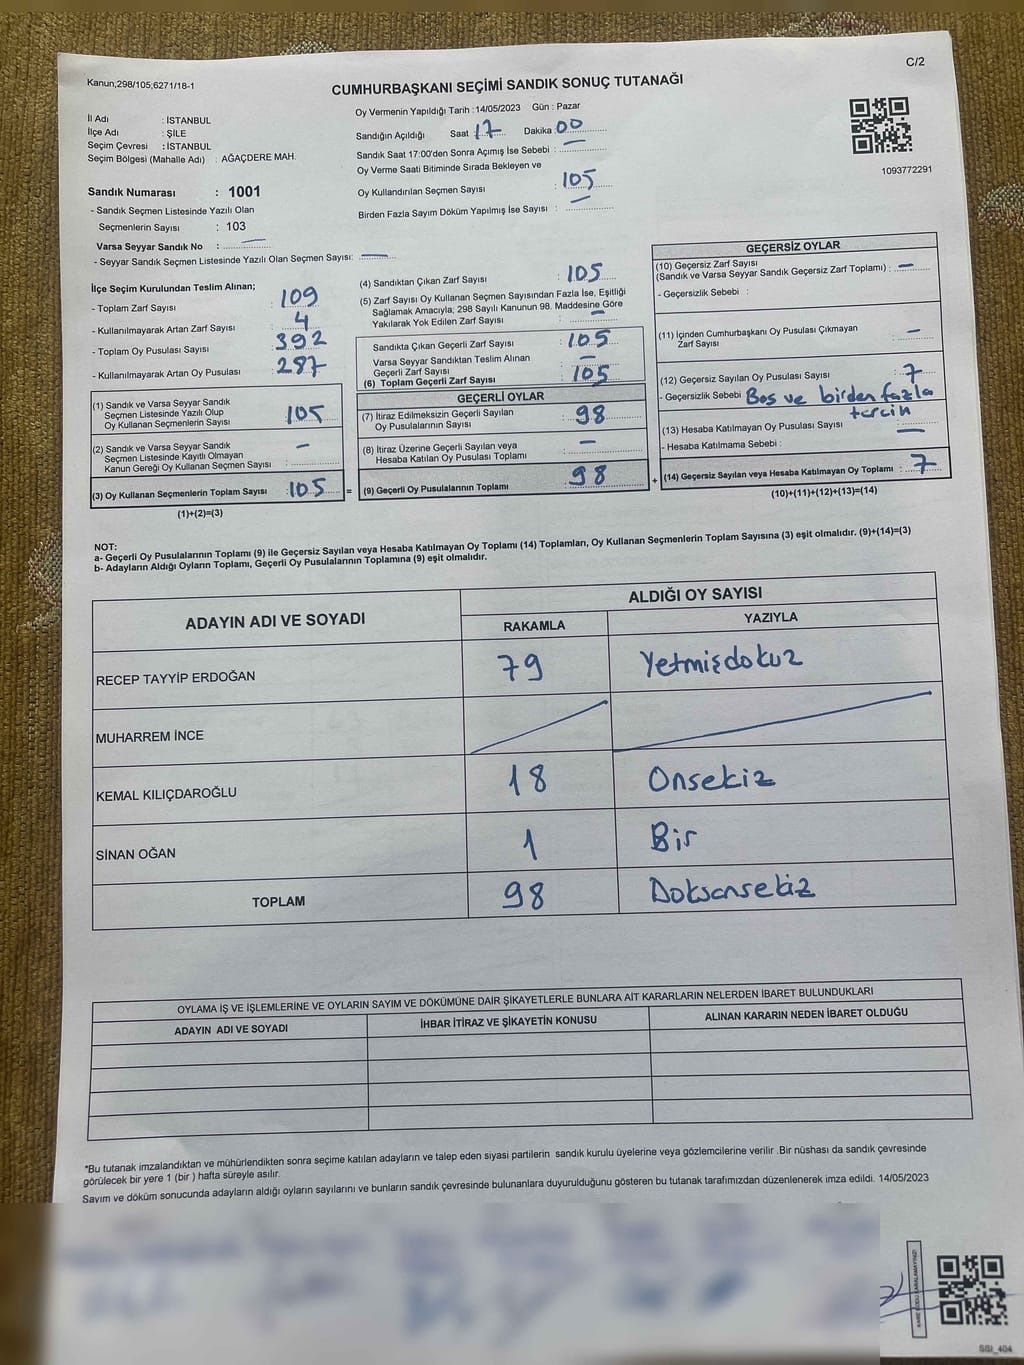 Kanun;298/105;6271/18-1
C/2
CUMHURBAŞKANI SEÇİMİ SANDIK SONUÇ TUTANAĞI
İl Adı : İSTANBUL
İlçe Adı : ŞİLE
Seçim Çevresi : İSTANBUL
Seçim Bölgesi (Mahalle Adı) : AĞAÇDERE MAH.
Sandık Numarası : 1001
- Sandık Seçmen Listesinde Yazılı Olan
Seçmenlerin Sayısı : 103
Varsa Seyyar Sandık No :
- Seyyar Sandık Seçmen Listesinde Yazılı Olan Seçmen Sayısı: —
Oy Vermenin Yapıldığı Tarih : 14/05/2023 Gün : Pazar
Sandığın Açıldığı Saat 17 Dakika 00
Sandık Saat 17:00'den Sonra Açımış İse Sebebi : —
Oy Verme Saati Bitiminde Sırada Bekleyen ve
Oy Kullandırılan Seçmen Sayısı : 105
Birden Fazla Sayım Döküm Yapılmış İse Sayısı : —
1093772291
İlçe Seçim Kurulundan Teslim Alınan;
- Toplam Zarf Sayısı 109
- Kullanılmayarak Artan Zarf Sayısı 4
- Toplam Oy Pusulası Sayısı 392
- Kullanılmayarak Artan Oy Pusulası 287
(1) Sandık ve Varsa Seyyar Sandık
Seçmen Listesinde Yazılı Olup
Oy Kullanan Seçmenlerin Sayısı 105
(2) Sandık ve Varsa Seyyar Sandık
Seçmen Listesinde Kayıtlı Olmayan
Kanun Gereği Oy Kullanan Seçmen Sayısı : —
(3) Oy Kullanan Seçmenlerin Toplam Sayısı : 105 =
(1)+(2)=(3)
(4) Sandıktan Çıkan Zarf Sayısı 105
(5) Zarf Sayısı Oy Kullanan Seçmen Sayısından Fazla İse, Eşitliği
Sağlamak Amacıyla; 298 Sayılı Kanunun 98. Maddesine Göre
Yakılarak Yok Edilen Zarf Sayısı : —
Sandıkta Çıkan Geçerli Zarf Sayısı : 105
Varsa Seyyar Sandıktan Teslim Alınan
Geçerli Zarf Sayısı —
(6) Toplam Geçerli Zarf Sayısı : 105
GEÇERLİ OYLAR
(7) İtiraz Edilmeksizin Geçerli Sayılan
Oy Pusulalarının Sayısı : 98
(8) İtiraz Üzerine Geçerli Sayılan veya
Hesaba Katılan Oy Pusulası Toplamı : —
(9) Geçerli Oy Pusulalarının Toplamı : 98 +
GEÇERSİZ OYLAR
(10) Geçersiz Zarf Sayısı
(Sandık ve Varsa Seyyar Sandık Geçersiz Zarf Toplamı) : —
- Geçersizlik Sebebi :
(11) İçinden Cumhurbaşkanı Oy Pusulası Çıkmayan
Zarf Sayısı : —
(12) Geçersiz Sayılan Oy Pusulası Sayısı : 7
- Geçersizlik Sebebi Boş ve birden fazla
tercih
(13) Hesaba Katılmayan Oy Pusulası Sayısı : —
- Hesaba Katılmama Sebebi :
(14) Geçersiz Sayılan veya Hesaba Katılmayan Oy Toplamı : 7
(10)+(11)+(12)+(13)=(14)
NOT:
a- Geçerli Oy Pusulalarının Toplamı (9) ile Geçersiz Sayılan veya Hesaba Katılmayan Oy Toplamı (14) Toplamları, Oy Kullanan Seçmenlerin Toplam Sayısına (3) eşit olmalıdır. (9)+(14)=(3)
b- Adayların Aldığı Oyların Toplamı, Geçerli Oy Pusulalarının Toplamına (9) eşit olmalıdır.
ADAYIN ADI VE SOYADI ALDIĞI OY SAYISI
RAKAMLA YAZIYLA
RECEP TAYYİP ERDOĞAN 79 Yetmişdokuz
MUHARREM İNCE
KEMAL KILIÇDAROĞLU 18 Onsekiz
SİNAN OĞAN 1 Bir
TOPLAM 98 Doksansekiz
OYLAMA İŞ VE İŞLEMLERİNE VE OYLARIN SAYIM VE DÖKÜMÜNE DAİR ŞİKAYETLERLE BUNLARA AİT KARARLARIN NELERDEN İBARET BULUNDUKLARI
ADAYIN ADI VE SOYADI İHBAR İTİRAZ VE ŞİKAYETİN KONUSU ALINAN KARARIN NEDEN İBARET OLDUĞU
*Bu tutanak imzalandıktan ve mühürlendikten sonra seçime katılan adayların ve talep eden siyasi partilerin sandık kurulu üyelerine veya gözlemcilerine verilir .Bir nüshası da sandık çevresinde
görülecek bir yere 1 (bir ) hafta süreyle asılır.
Sayım ve döküm sonucunda adayların aldığı oyların sayılarını ve bunların sandık çevresinde bulunanlara duyurulduğunu gösteren bu tutanak tarafımızdan düzenlenerek imza edildi. 14/05/2023
KARE KODU KARALAMAYINIZ!
SSI_404